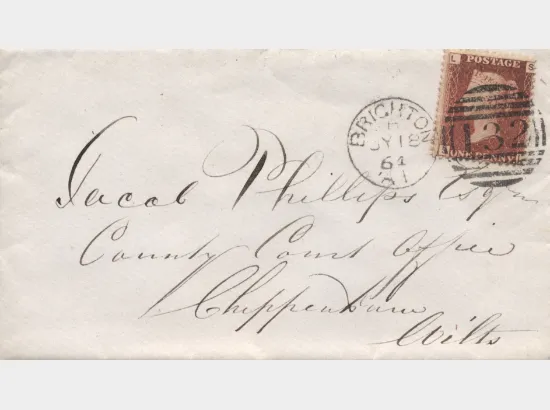 L S
POSTAGE
ONE PENNY
132
BRIGHTON
JY 18
64
Jacob Phillips Esqre
County Court Office
Chippenham
Wilts